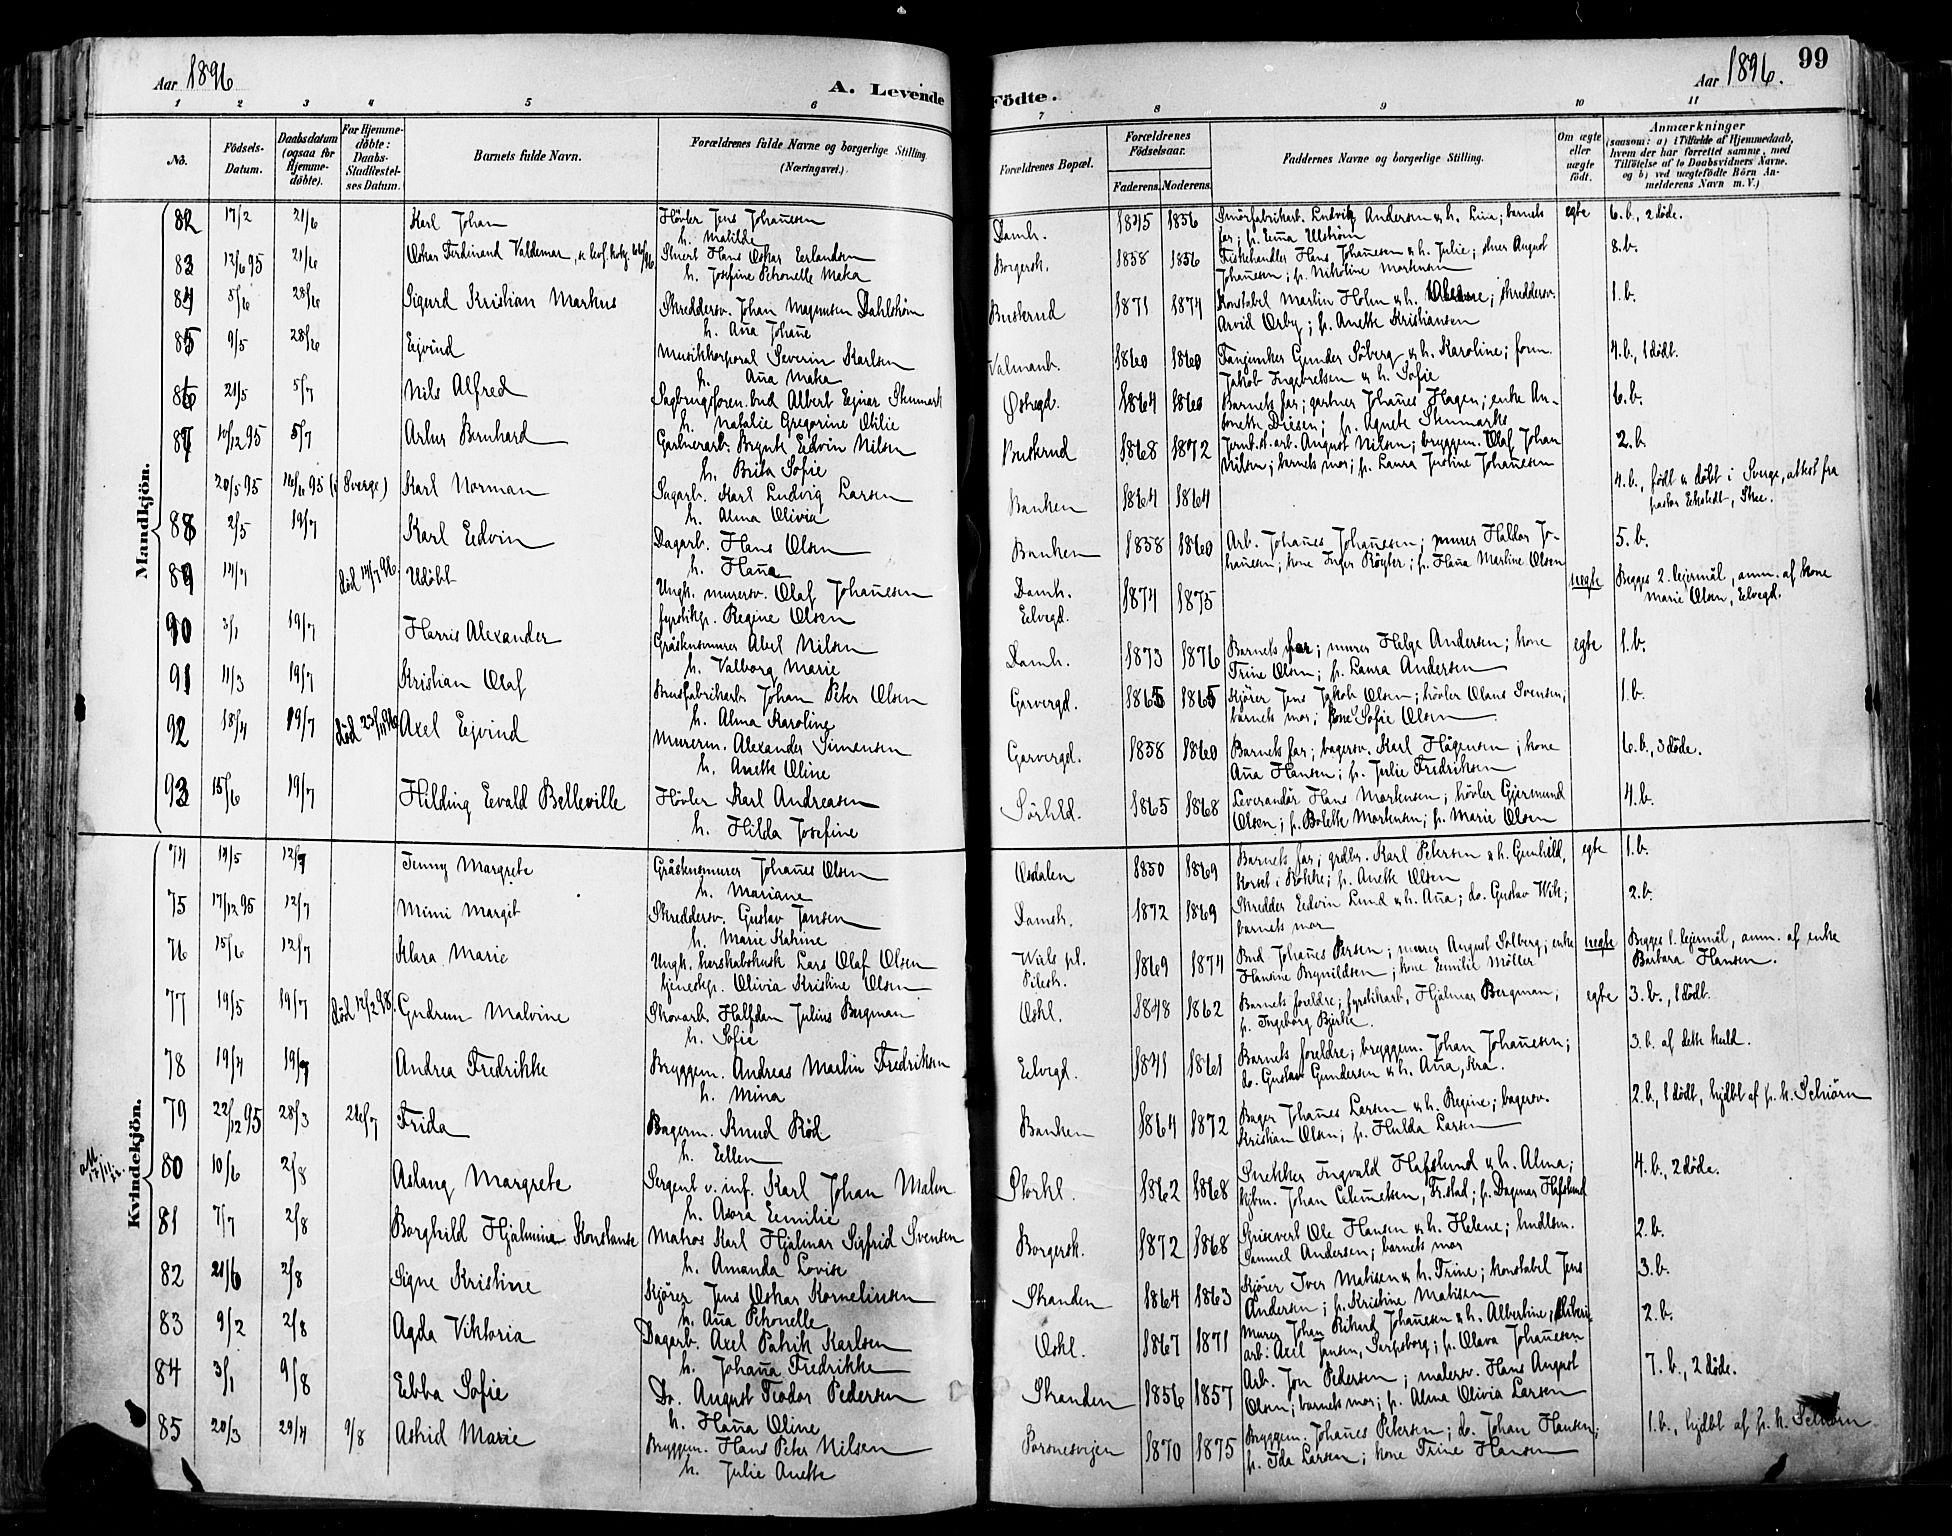 Aar 1896
A. Levende
Födte.
Aar 1896.
99
1 2 3 4 5 6 7 8 9 10 11
No.
Fødsels-Datum.
Daabsdatum (ogsaa for Hjemme-døbte).
For Hjemme-døbte: Daabs-Stadfæstel-ses Datum.
Barnets fulde Navn.
Forældrenes fulde Navne og borgerlige Stilling. (Næringsvei.)
Forældrenes Bopæl.
Forældrenes Fødselsaar.
Faderens. Moderens.
Faddernes Navne og borgerlige Stilling.
Om ægte eller uægte født.
Anmærkninger (saasom: a) i Tilfælde af Hjemmedaab, hvem der har forrettet samme, med Tilføielse af to Daabsvidners Navne. og b) ved uægtefødte Börn An-melderens Navn m. V.)
Mandkjön.
82 17/2 21/6 Karl Johan Hövler Jens Johanesen Damh. 1845 1856 Smörfabrikarb. Ludvig Andersen & h. Lina; barnets egte 6. b., 2 döde.
h. Matilde far; p. Ema Ulström
83 12/6 95 21/6 Oskar Ferdinand Valdemar, Stuert Hans Oskar Eerlandsen Borgersk. 1858 1856 Fiskehandler Hans Johanesen & h. Julie; stuer August 8. b.
h. Josefine Petronelle Maka Johanesen; p. Nikoline Martensen
84 5/6 28/6 Sigurd Kristian Markus Skreddersv. Johan Magnusen Dahlström Buskrud 1871 1874 Konstabel Martin Holm & h. skreddersv. 1. b.
h. Ana Johane Arvid Örby; p. Anette Kristiansen
85 9/5 28/6 Ejvind Musikkorporal Severin Karlsen 1860 1860 Fanjunker Gunder Söberg & h. Karoline; form. 4. b., 1 dödf.
h. Ana Maka Jakob Ingebretsen & h. Sofie
86 21/5 5/7 Nils Alfred Sagbrugsforen. bud Albert Ejnar Stenmark 1864 1860 Barnets far; gartner Johanes Hagen; enke An- 6. b.
h. Natalie Gregorine Otilie tonette Diesen; p. Agnete Stenmarks
87 10/12 95 5/7 Artur Bernhard Gartnerarb. Brynte Edvin Nilsen Buskrud 1868 1872 Jernb.st.arb. August Nilsen; bryggem. Olaf Johan 2. b.
h. Brita Sofie Nilsen; barnets mor; p. Laura Justine Johanesen
20/5 95 16/6 95 (i Sverge) Karl Norman Sagarb. Karl Ludvig Larsen Banken 1864 1864 4. b., födt & döbt i Sverge, attest fra
h. Alma Olivia pastor Ekstedt, Skee.
88 2/5 19/7 Karl Edvin Dagarb. Hans Olsen Banken 1858 1860 Arb. Johanes Johanesen; murer Haldor Jo- 5. b.
h. Hana hanesen; kone Inger Röyter; p. Hana Martine Olsen
89 14/7 död 14/7 96. Udöbt Ungk. murersv. Olaf Johanesen Damh. 1874 1875 uegte Begges 2. lejermål, anm. af kone
fyrstikp. Regine Olsen Elvegd. Marie Olsen, Elvegd.
90 3/1 19/7 Harris Alexander Gråstensmurer Abel Nilsen Damh. 1873 1876 Barnets far; murer Helge Andersen; kone egte 1. b.
h. Valborg Marie Trine Olsen; p. Laura Andersen
91 11/3 19/7 Kristian Olaf Brusfabrikarb. Johan Peter Olsen Garvergd. 1865 1865 Kjörer Jens Jakob Olsen; hövler Olaus Svensen; 1. b.
h. Alma Karoline barnets mor; kone Sofie Olsen
92 18/4 19/7 död 23/11 96 Axel Ejvind Murerm. Alexander Simensen Garvergd. 1858 1860 Barnets far; bagersv. Karl Hågensen; kone 6. b., 3 döde.
h. Anette Oline Ana Hansen; p. Julie Fredriksen
93 15/6 19/7 Hilding Evald Belleville Hövler Karl Andreasen Sörhld. 1865 1868 Leverandör Hans Martensen; hövler Gjermund 4. b.
h. Hilda Josefine Olsen; p. Bolette Martensen; p. Marie Olsen
Kvindekjön.
74 14/5 12/7 Jenny Margrete Gråstensmurer Johanes Olsen Osdalen 1850 1869 Barnets far; grdbr. Karl Petersen & h. Gunhild, egte 1. b.
h. Mariane Korset i Rokke; p. Anette Olsen
75 17/12 95 12/7 Mimi Margit Skreddersv. Gustav Jansen Damh. 1872 1869 Skredder Edvin Lund & h. Ana; do. Gustav Wik; 2. b.
h. Marie Katrine barnets mor
76 15/6 12/7 Klara Marie Ungk. herskabskusk Lars Olaf Olsen Wiels pl. 1869 1874 Bud Johanes Persen; murer August Solberg; enke uegte Begges 1. lejermål, anm. af enke
tjenestp. Olivia Kristine Olsen Pilesk. Hansine Brynildsen; kone Emilie Möller Barbara Hansen.
77 19/5 19/7 död 12/2 98. Gudrun Malvine Skovarb. Halfdan Julius Bergman Oskl. 1848 1862 Barnets foreldre; fyrstikarb. Hjalmar Bergman; egte 3. b., 1 dödf.
h. Sofie p. Ingeborg Bjerke.
78 19/4 19/7 Andrea Fredrikke Bryggem. Andreas Martin Fredriksen Elvegd. 1841 1861 Barnets foreldre; bryggem. Johan Johanesen; 3. b. af dette kuld.
h. Mina do. Gustav Gundersen & h. Ana, Kra.
79 22/12 95 28/3 26/7 Frida Bagerm. Knud Röd Banken 1864 1872 Bager Johanes Larsen & h. Regine; bagersv. 2. b., 1 dödf, hjdbt af p. k. Schiörn
h. Ellen Kristian Olsen; p. Hulda Larsen
80 10/6 2/8 Aslaug Margrete Sergent v. inf. Karl Johan Malm Storkl. 1862 1868 Snekker Ingvald Hafslund & h. Alma; 4. b., 2 döde.
h. Asora Emilie kjbm. Johan Clemetsen, Fr.stad; p. Dagmar Hafslund
81 7/7 2/8 Borghild Hjalmina Konstanse Matros Karl Hjalmar Sigfrid Svensen Borgersk. 1872 1868 Grisevert Ole Hansen & h. Helene; hndlsm. 2. b.
h. Amanda Lovise Samuel Andersen; barnets mor
82 21/6 2/8 Signe Kristine Kjörer Jens Oskar Kornelinsen Skanden 1864 1863 Kjörer Iver Matisen & h. Trine; konstabel Jens 3. b.
h. Ana Petronelle Andersen; p. Kristine Matisen
83 9/2 2/8 Agda Viktoria Dagarb. Axel Patrik Karlsen Oskl. 1867 1871 Murer Johan Rikard Johanesen & h. Albertine; 2. b.
h. Johana Fredrikke arb. Axel Jansen, Sarpsborg; p. Olava Johanesen
84 3/1 9/8 Ebba Sofie Do. August Teodor Pedersen Skanden 1856 1857 Arb. Jon Pedersen; malersv. Hans August 7. b., 2 döde.
h. Hana Oline Olsen; barnets mor; p. Alma Olivia Larsen
85 20/3 29/4 9/8 Astrid Marie Bryggem. Hans Peter Nilsen Porsnesvejen 1870 1875 Bryggem. Johanes Petersen; do. Johan Hansen; 1. b., hjdbt af p. k. Schiörn
h. Julie Anette p. Ida Larsen; kone Trine Hansen